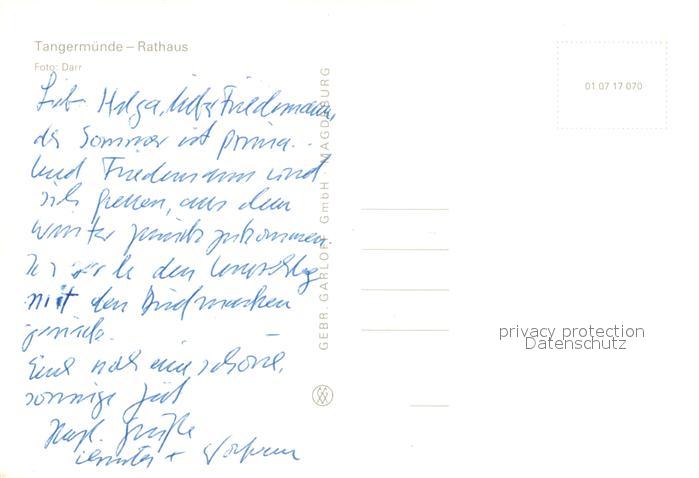 Tangermünde – Rathaus
Foto: Darr
Helga, liebe Friedemann,
der Sommer ist prima.
Und Friedemann wird
sich freuen, aus dem
Winter zurückzukommen.
den Umschlag
mit den Briefmarken
zurück.
Euch noch eine schöne,
sonnige Zeit
Herzl. Grüße
+
GEBR. GARLOFF GmbH · MAGDEBURG
01 07 17 070
privacy protection
Datenschutz